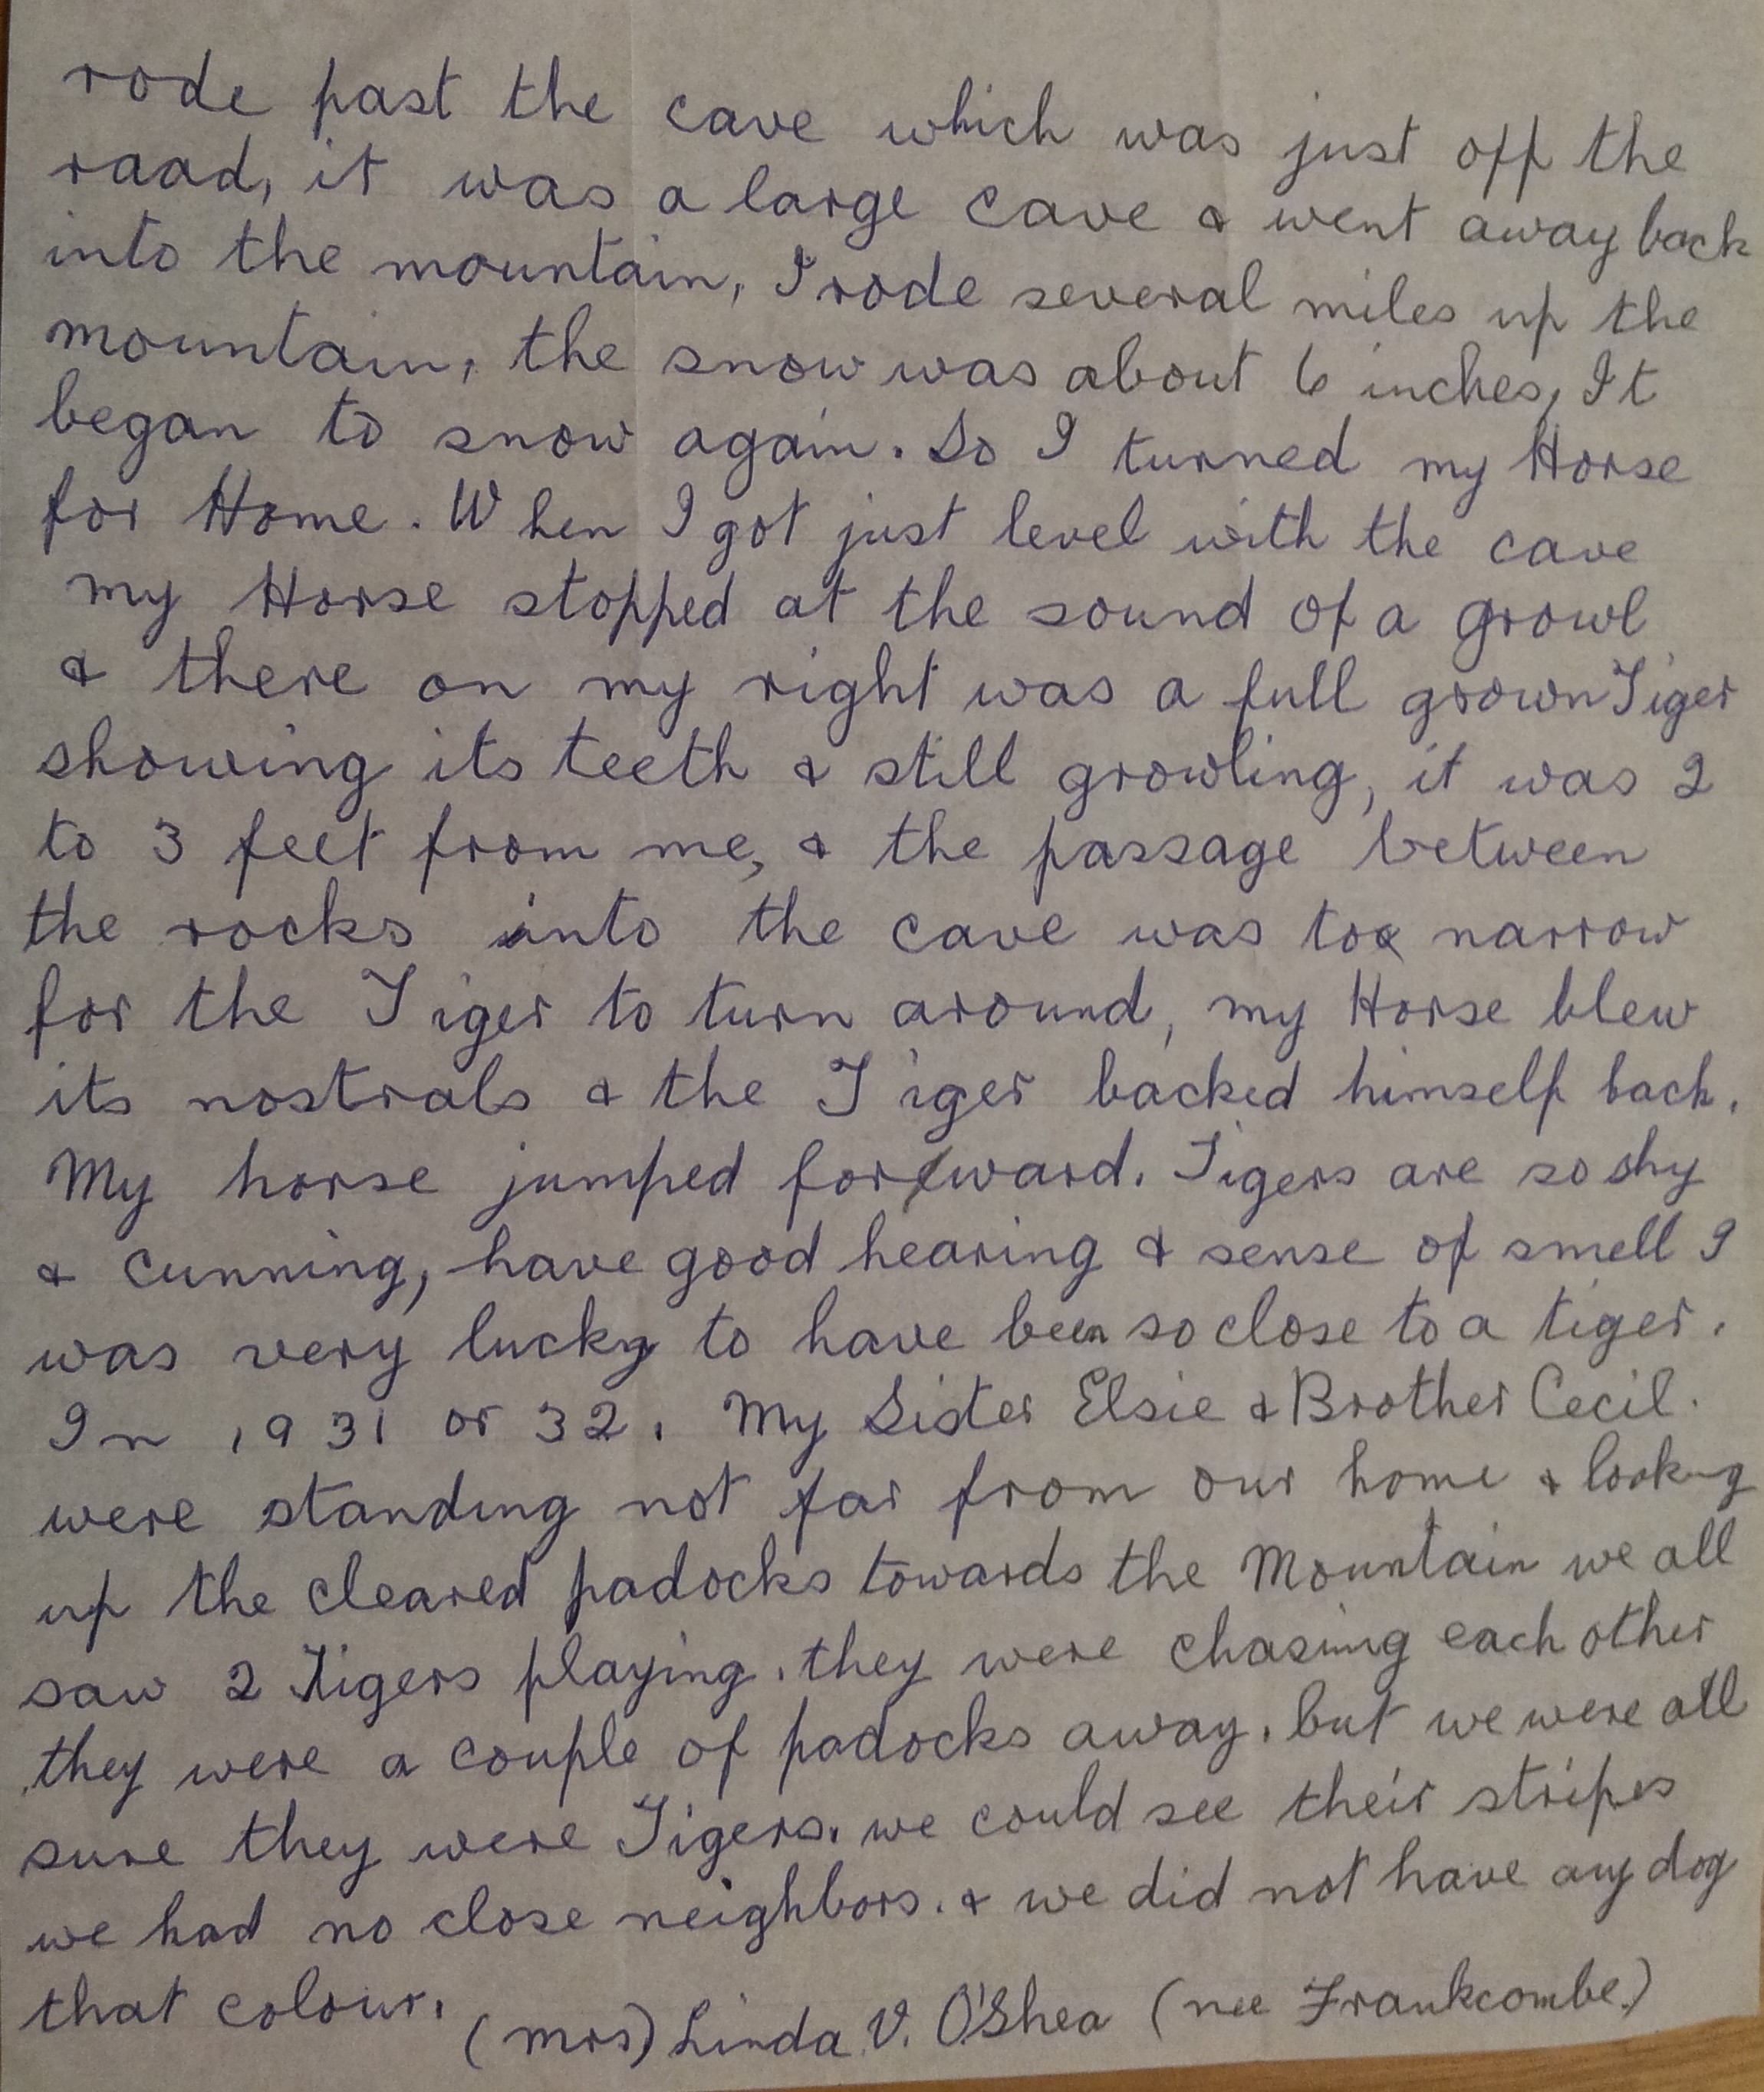 rode past the cave which was just off the
raad, it was a large cave & went away back
into the mountain, I rode several miles up the
mountain, the snow was about 6 inches, It
began to snow again. So I turned my Horse
for Home. When I got just level with the cave
my Horse stopped at the sound of a growl
& there on my right was a full grown Tiger
showing its teeth & still growling, it was 2
to 3 feet from me, & the passage between
the rocks into the cave was too narrow
for the Tiger to turn around, my Horse blew
its nostrals & the Tiger backed himself back.
My horse jumped forward. Tigers are so shy
& cunning, have good hearing & sense of smell I
was very lucky to have been so close to a tiger.
In 1931 or 32. My Sister Elsie & Brother Cecil.
were standing not far from our home & looking
up the cleared padocks towards the Mountain we all
saw 2 Tigers playing. they were chasing each other
they were a couple of padocks away. but we were all
sure they were Tigers. we could see their stripes
we had no close neighbors. & we did not have any dog
that colour.
(Mrs) Linda V. O'Shea (nee Frankcombe.)